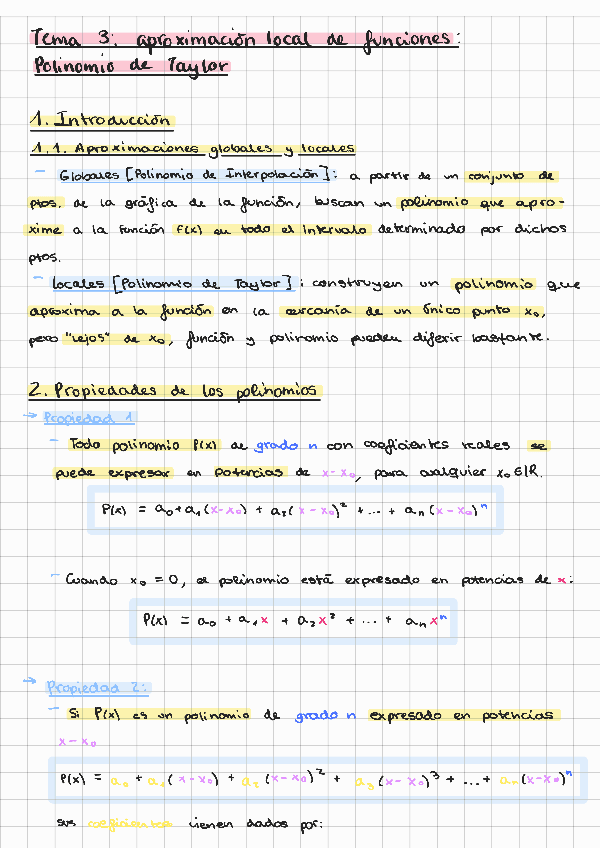 Tema 3: aproximación local de funciones:
Polinomio de Taylor
1. Introducción
1.1. Aproximaciones globales y locales
- Globales [Polinomio de Interpolación]: a partir de un conjunto de
ptos. de la gráfica de la función, buscan un polinomio que apro-
xime a la función f(x) en todo el intervalo determinado por dichos
ptos.
- Locales [Polinomio de Taylor]: construyen un polinomio que
aproxima a la función en la cercanía de un único punto x₀,
pero "lejos" de x₀, función y polinomio pueden diferir bastante.
2. Propiedades de los polinomios
→ Propiedad 1
- Todo polinomio P(x) de grado n con coeficientes reales se
puede expresar en potencias de x-x₀, para cualquier x₀ ∈ ℝ.
P(x) = a₀ + a₁(x-x₀) + a₂(x-x₀)² + ... + aₙ(x-x₀)ⁿ
- Cuando x₀ = 0, el polinomio está expresado en potencias de x:
P(x) = a₀ + a₁x + a₂x² + ... + aₙxⁿ
→ Propiedad 2:
- Si P(x) es un polinomio de grado n expresado en potencias
x-x₀
P(x) = a₀ + a₁(x-x₀) + a₂(x-x₀)² + a₃(x-x₀)³ + ... + aₙ(x-x₀)ⁿ
sus coeficientes vienen dados por: